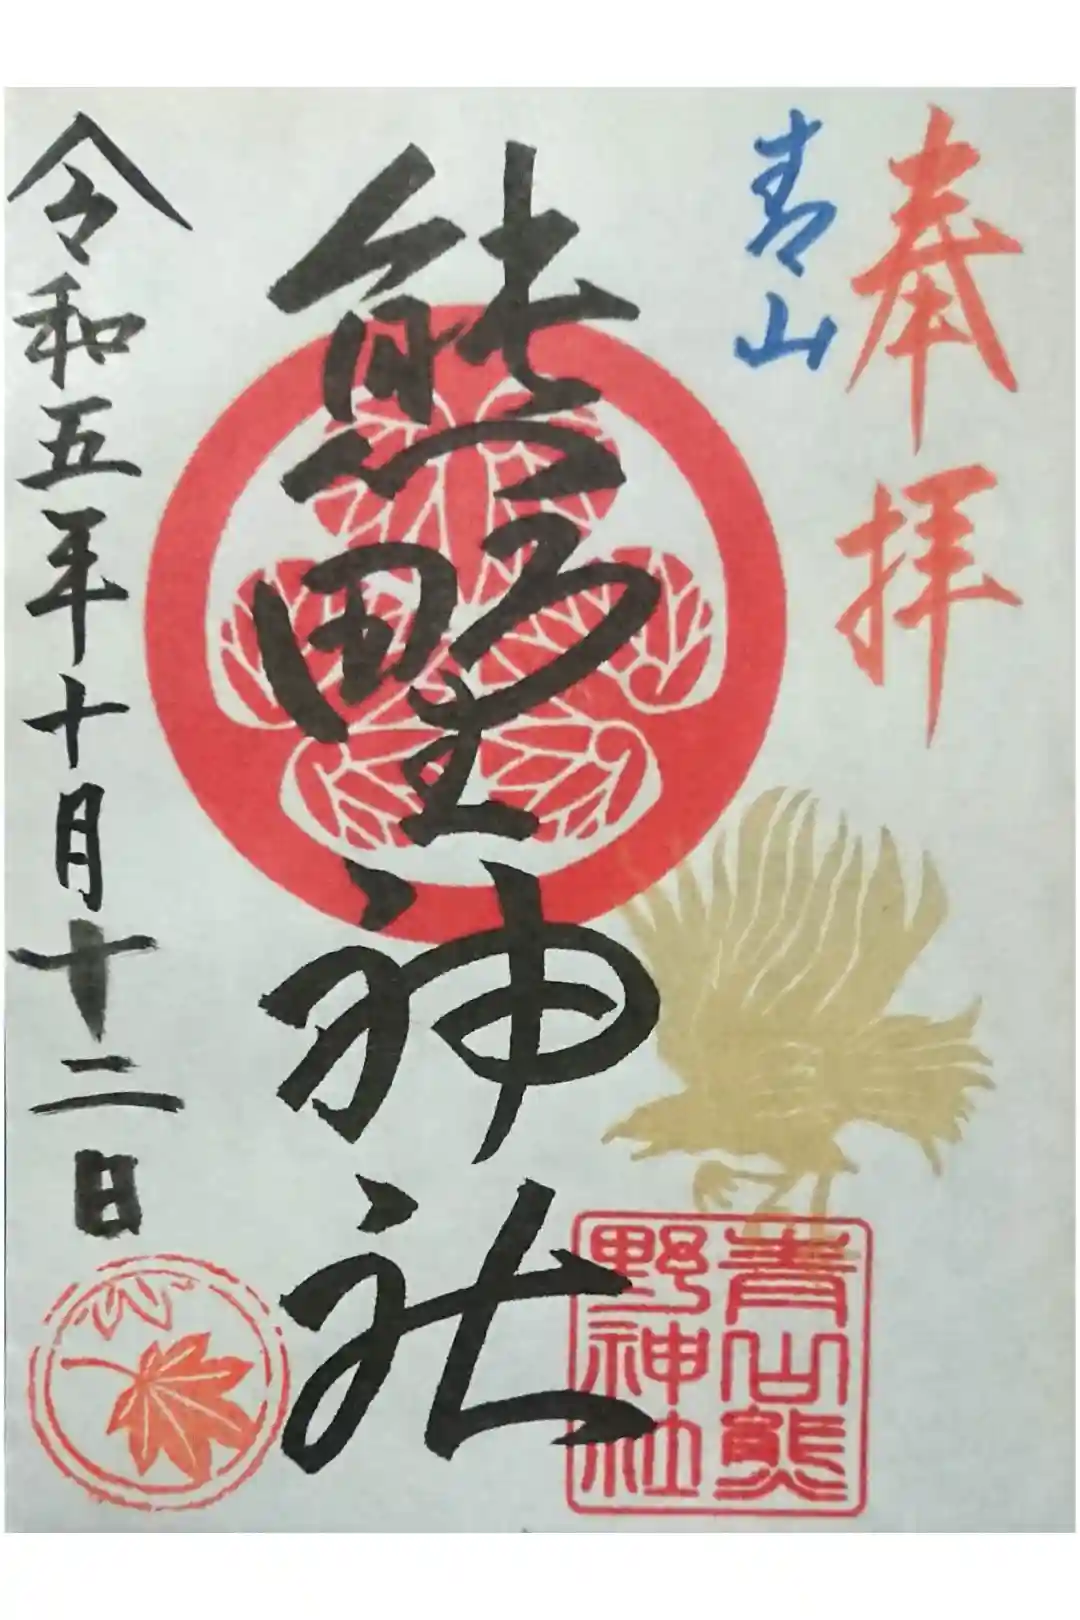 奉拝
青山
熊野神社
令和五年十月十二日
青山熊
野神社